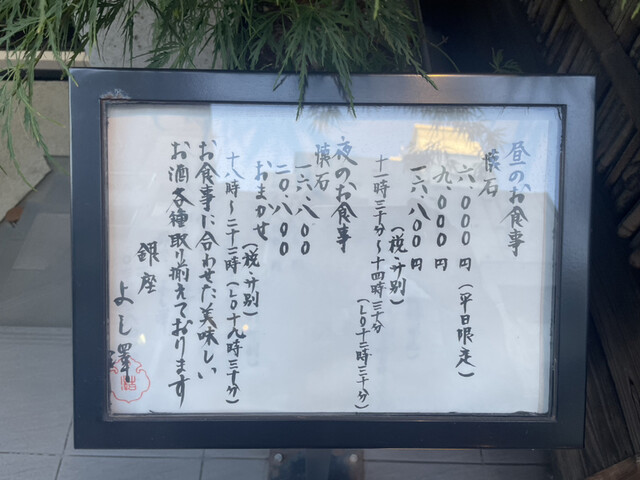 昼のお食事
懐石
六.000円(平日限定)
九.000円
一六.八00円
(税・サ別)
十一時三十分〜十四時三十分
(LO十二時三十分)
夜のお食事
懐石
一六.八00
二0.八00
おまかせ
(税・サ別)
十八時〜二十二時(LO十九時三十分)
お食事に合わせた美味しい
お酒各種取り揃えております
銀座
よし澤